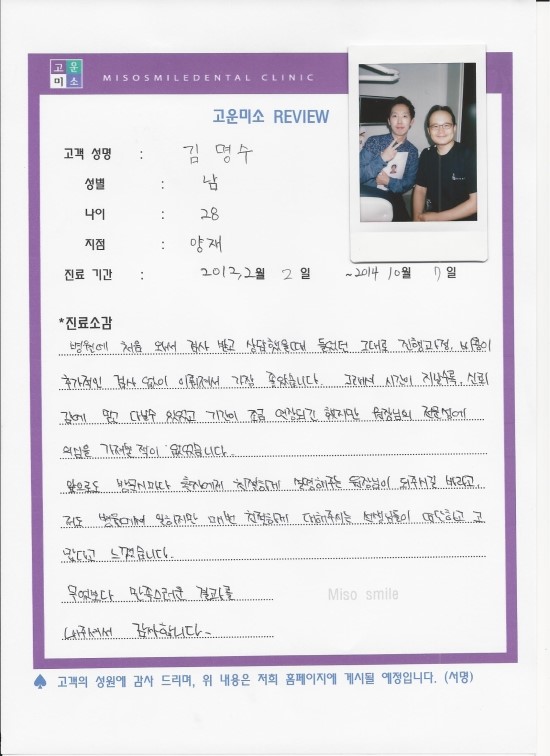 고운
미소
MISOSMILEDENTAL CLINIC
고운미소 REVIEW
고객 성명 : 김명수
성별 : 남
나이 : 28
지점 : 양재
진료 기간 : 2012.2월 2일 ~2014 10월 7일
*진료소감
병원에 처음 와서 검사 받고 상담했을때 들었던 그대로 진행과정, 비용이
추가적인 검사 없이 이뤄져서 가장 좋았습니다. 그래서 시간이 지날수록, 신뢰
감에 믿고 다닐수 있었고 기간이 조금 연장되긴 했지만 원장님의 전문성에
의심을 가져본 적이 없었습니다.
앞으로도 방문시마다 환자에게 친절하게 설명해주는 원장님이 되주시길 바라고,
저도 병원에서 일하지만 매번 친절하게 대해주시는 선생님들이 대단하고 고
맙다고 느꼈습니다.
무엇보다 만족스러운 결과를
내주셔서 감사합니다~
Miso smile
고객의 성원에 감사 드리며, 위 내용은 저희 홈페이지에 게시될 예정입니다. (서명)